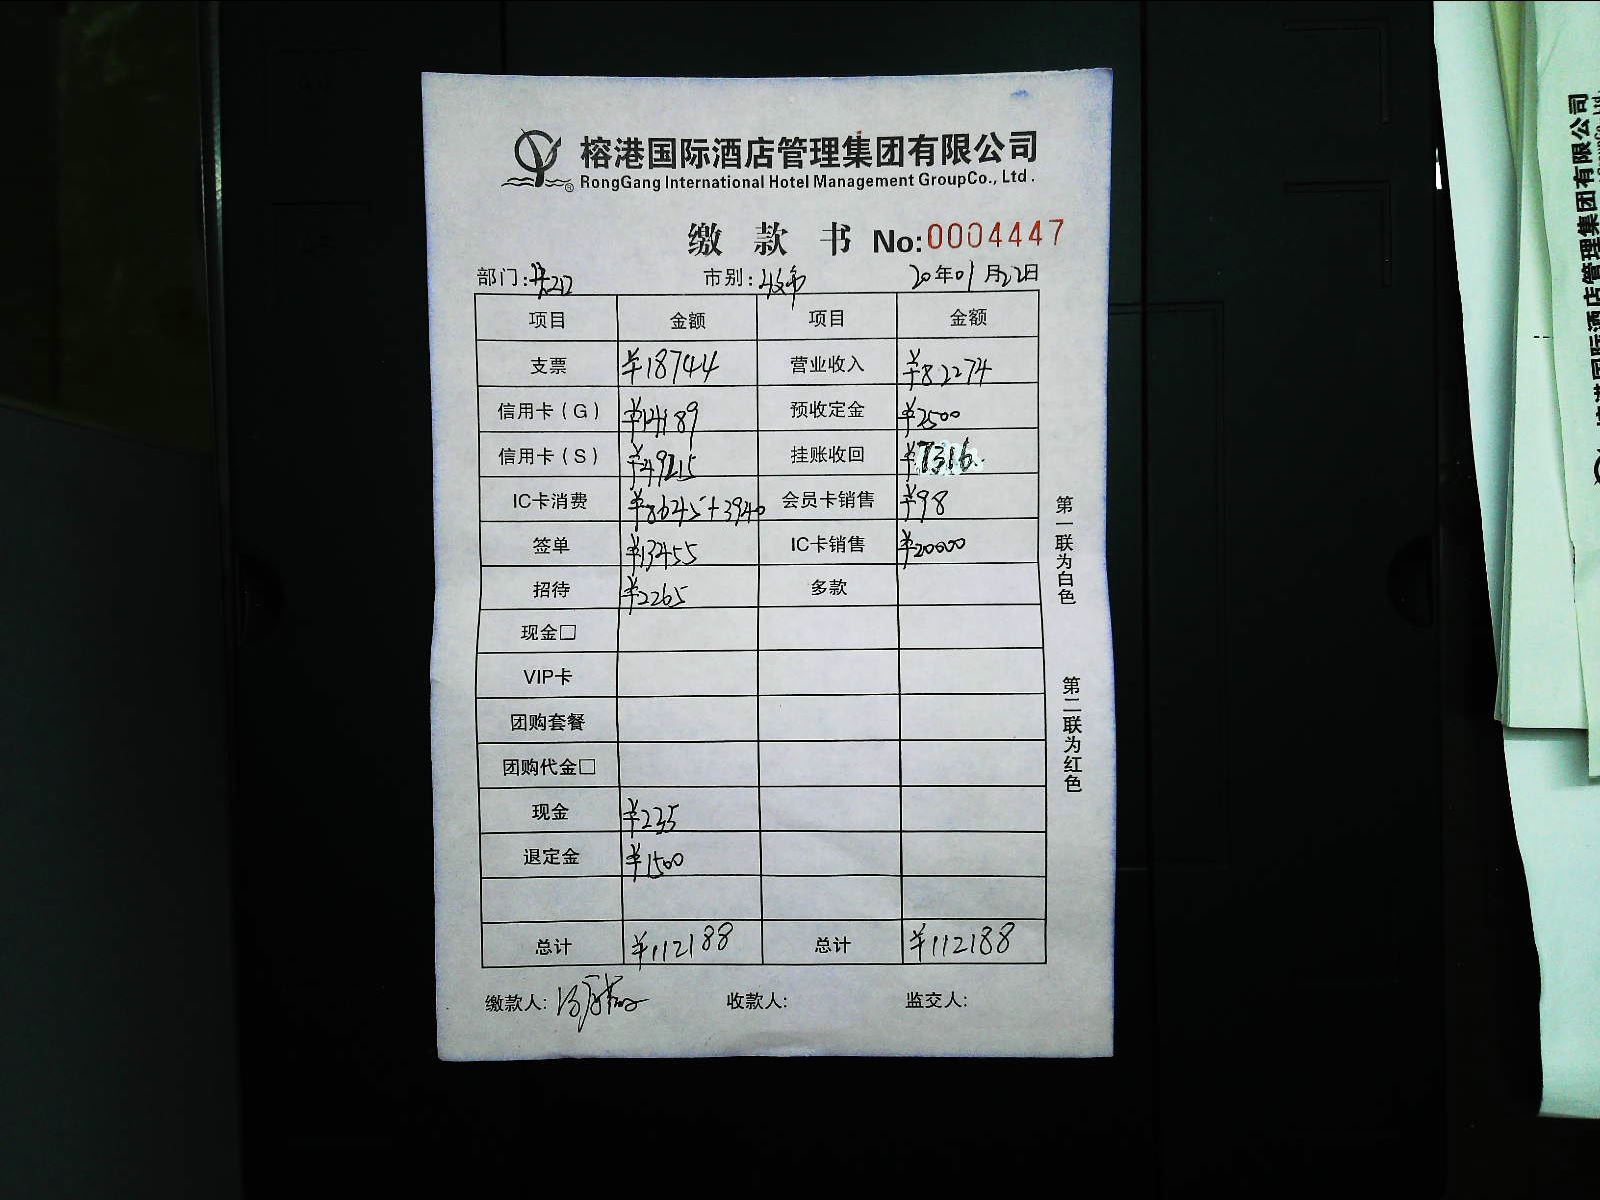 榕港国际酒店管理集团有限公司
RongGang International Hotel Management GroupCo., Ltd.
缴款书 No:0004447
部门: 市别: 20年01月22日
项目 金额 项目 金额
支票 ¥18744 营业收入 ¥82274
信用卡(G) ¥14189 预收定金 ¥2500
信用卡(S) ¥49215 挂账收回 ¥7316
IC卡消费 ¥8645+3940 会员卡销售 ¥98
签单 ¥13455 IC卡销售 ¥20000
招待 ¥2265 多款
现金□
VIP卡
团购套餐
团购代金□
现金 ¥235
退定金 ¥1500
总计 ¥112188 总计 ¥112188
缴款人: 收款人: 监交人:
第一联为白色
第二联为红色
榕港国际酒店管理集团有限公司